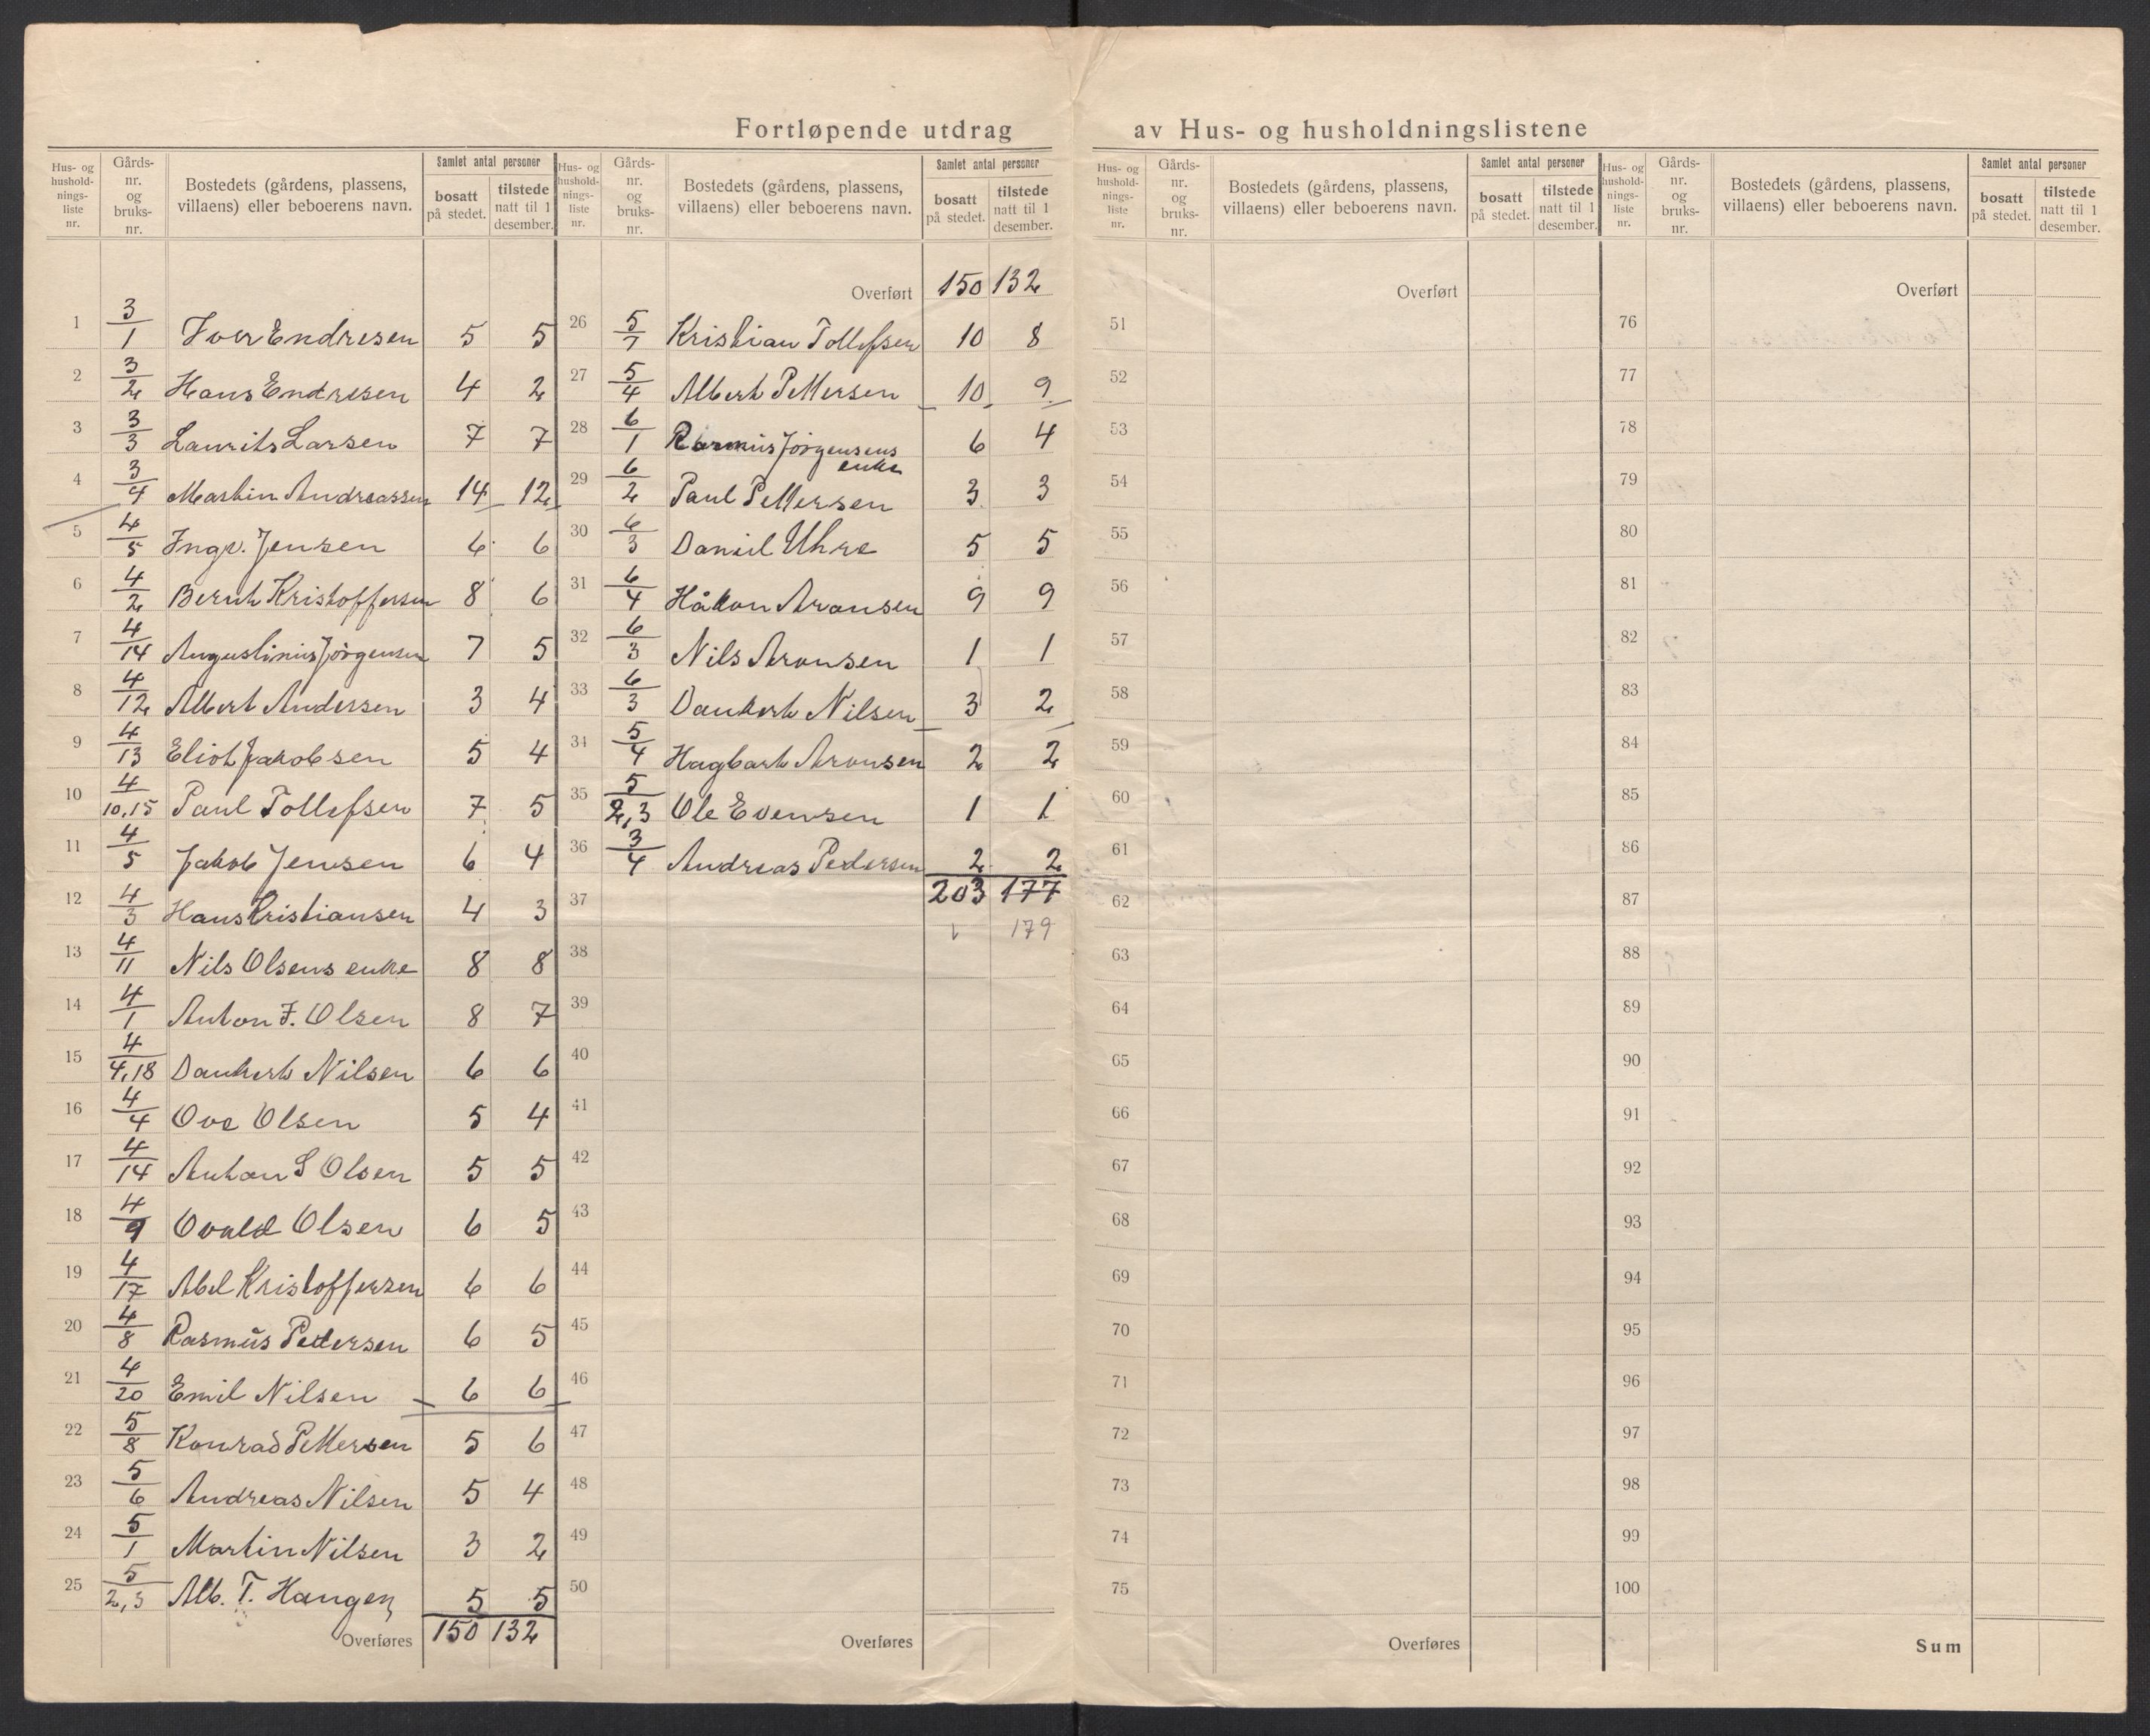 Fortløpende utdrag av Hus- og husholdningslistene
Hus- og husholdnings-liste nr. | Gårds-nr. og bruks-nr. | Bostedets (gårdens, plassens, villaens) eller beboerens navn. | Samlet antal personer bosatt på stedet. | tilstede natt til 1 desember.
1 3/1 Iver Endresen 5 5
2 3/2 Hans Endresen 4 2
3 3/3 Laurits Larsen 7 7
4 3/4 Martin Andreassen 14 12
5 4/5 Ingv. Jensen 6 6
6 4/2 Bernt Kristoffersen 8 6
7 4/14 Augustinius Jörgensen 7 5
8 4/12 Albert Andersen 3 4
9 4/13 Eliot Jakobsen 5 4
10 4/10,15 Paul Tollefsen 7 5
11 4/5 Jakob Jensen 6 4
12 4/3 Hans Kristiansen 4 3
13 4/11 Nils Olsens enke 8 8
14 4/1 Anton F. Olsen 8 7
15 4/4,18 Dankert Nilsen 6 6
16 4/4 Ove Olsen 5 4
17 4/14 Anton S Olsen 5 5
18 4/9 Ovald Olsen 6 5
19 4/17 Abel Kristoffersen 6 6
20 4/8 Rasmus Pedersen 6 5
21 4/20 Emil Nilsen 6 6
22 5/8 Konrad Pettersen 5 6
23 5/6 Andreas Nilsen 5 4
24 5/1 Martin Nilsen 3 2
25 5/2,3 Alb. T. Haugen 5 5
Overføres 150 132
Hus- og husholdnings-liste nr. | Gårds-nr. og bruks-nr. | Bostedets (gårdens, plassens, villaens) eller beboerens navn. | Samlet antal personer bosatt på stedet. | tilstede natt til 1 desember.
Overført 150 132
26 5/7 Kristian Tollefsen 10 8
27 5/4 Albert Pettersen 10 9
28 6/1 Rasmus Jörgensens enke 6 4
29 6/2 Paul Pettersen 3 3
30 6/3 Daniel Uhre 5 5
31 6/4 Håkon Aronsen 9 9
32 6/3 Nils Aronsen 1 1
33 6/3 Dankert Nilsen 3 2
34 5/4 Hagbart Aronsen 2 2
35 5/2,3 Ole Evensen 1 1
36 3/4 Andreas Pedersen 2 2
37 203 177
179
38
39
40
41
42
43
44
45
46
47
48
49
50
Overføres
Hus- og husholdnings-liste nr. | Gårds-nr. og bruks-nr. | Bostedets (gårdens, plassens, villaens) eller beboerens navn. | Samlet antal personer bosatt på stedet. | tilstede natt til 1 desember.
Overført
51
52
53
54
55
56
57
58
59
60
61
62
63
64
65
66
67
68
69
70
71
72
73
74
75
Overføres
Hus- og husholdnings-liste nr. | Gårds-nr. og bruks-nr. | Bostedets (gårdens, plassens, villaens) eller beboerens navn. | Samlet antal personer bosatt på stedet. | tilstede natt til 1 desember.
Overført
76
77
78
79
80
81
82
83
84
85
86
87
88
89
90
91
92
93
94
95
96
97
98
99
100
Sum